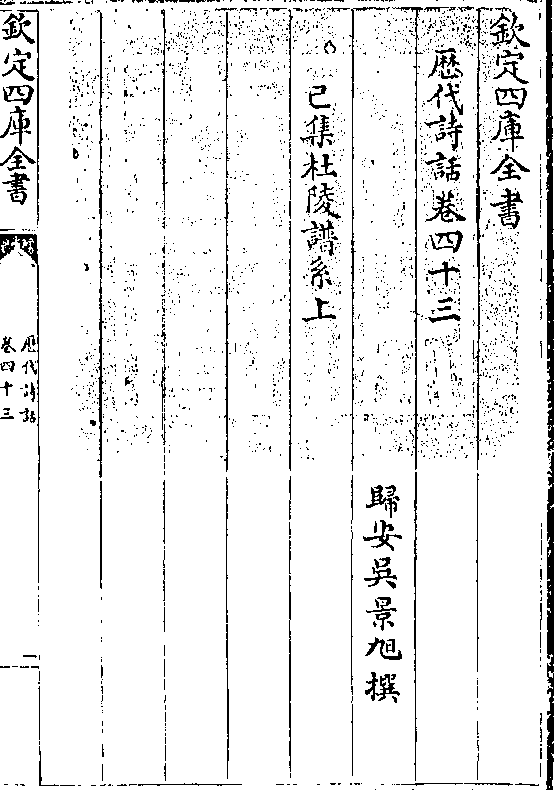 欽定四庫全書
歷代詩話卷四十三
歸安吳景旭撰
己集杜陵譜系上
欽定四庫全書
歷代詩話
卷四十三
一